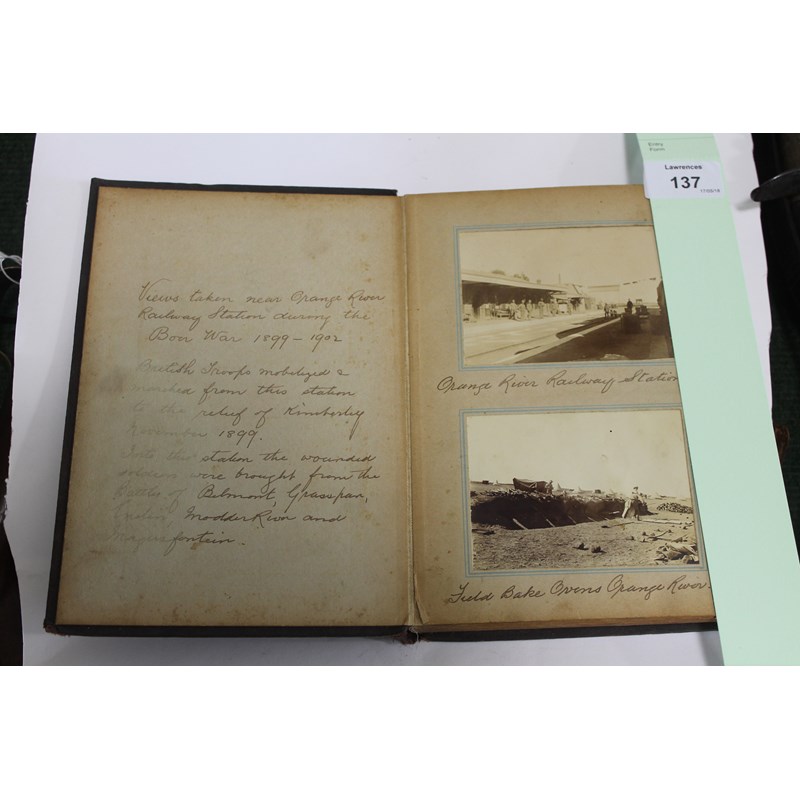 Views taken near Orange River
Railway Station during the
Boer War 1899-1902
British Troops mobilized &
marched from this station
to the relief of Kimberley
November 1899.
Into this station the wounded
soldiers were brought from the
Battles of Belmont, Grasspan,
Modder River and
Magersfontein.
Orange River Railway Station
Field Bake Ovens Orange River.
Entry
Form
Lawrences
137